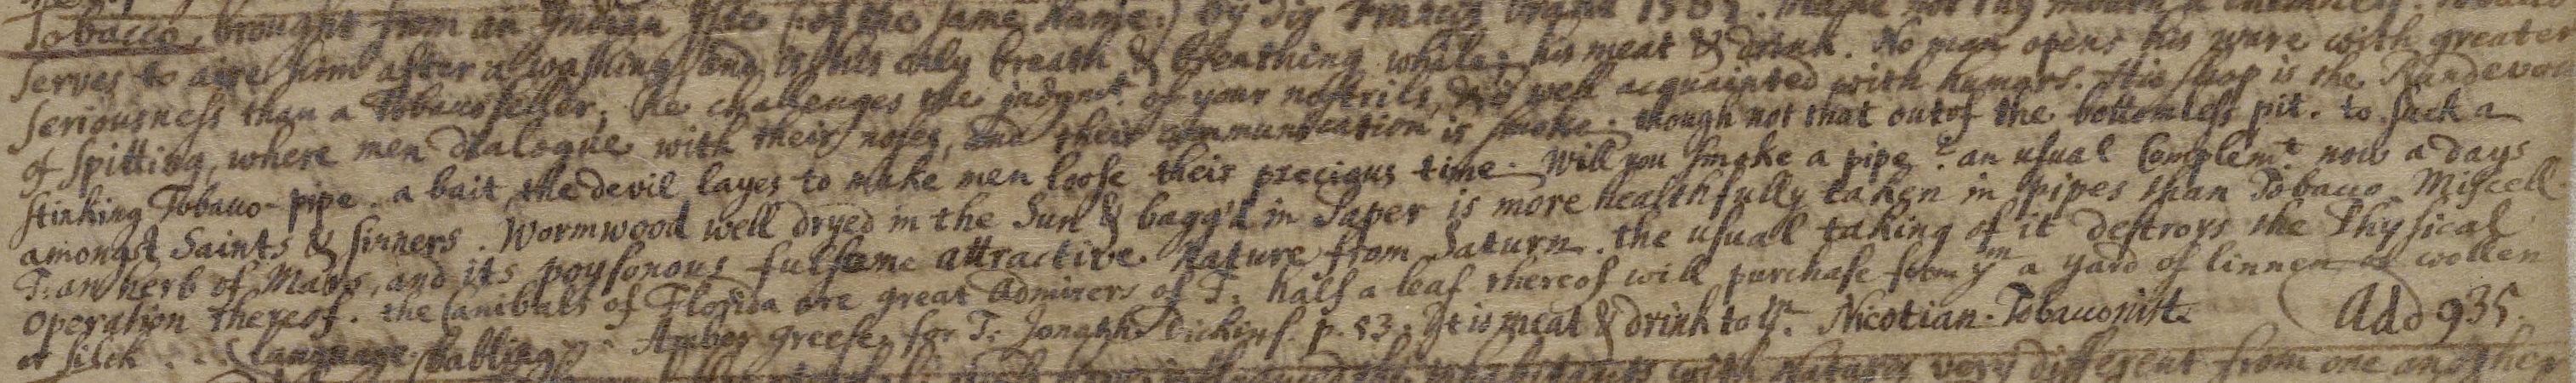 Tobacco, brought from an Indian Isle (: of the same Name:) by Sir Francis 1585. make not thy mouth a chimney.
serves to aire him after a washing, and is his only breath & breathing while: his meat & drink. No man opens his ware with greater
seriousness than a Tobaccoseller. he challenges the judgmt. of your nostrils, & is well acquainted with humors. His shop is the Randevou
of spitting, where men dialogue with their noses, and their communication is smoke. though not that out of the bottomless pit. to suck a
stinking Tobacco-pipe. a bait, the devil layes to make men loose their precious time. Will you smoke a pipe? an usual Complemt. now a days
amongst Saints & sinners. Wormwood well dryed in the Sun & bagg'd in Paper is more healthfully taken in pipes than Tobacco. Miscell.
T. an herb of Mars, and its poysonous fulsome attractive Nature from Saturn. the usual taking of it destroys the Physical
Operation thereof. the Canibals of Florida are great Admirers of T. half a leaf thereof will purchase from ym a yard of linnen or wollen
or silk. Amber greese for T. Jonath. Dickins. p. 53. It is meat & drink to Nicotian-Tobacconist. Add 935.
(language) babling
with Natures very different from one another